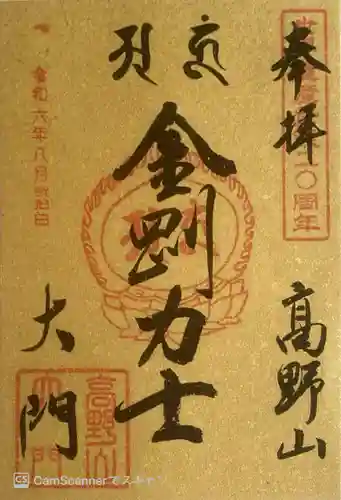 奉拝
高野山
金剛力士
大門
令和六年八月
高野山
大門
CamScannerでスキャン